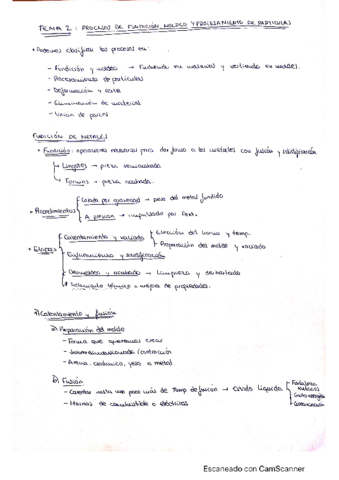 TEMA 2: PROCESOS DE FUNDICIÓN, MOLDEO Y PROCESAMIENTO DE PARTÍCULAS
• Podemos clasificar los procesos en:
- Fundición y moldeo → Fundiendo un material y vertiendo en moldes.
- Procesamiento de partículas
- Deformación y corte
- Eliminación de material
- Unión de partes
FUNDICIÓN DE METALES
• Fundición: operaciones necesarias para dar forma a los metales con fusión y solidificación
↳ Lingotes → pieza
↳ → pieza acabada.
• Procedimientos
Colada por gravedad → peso del metal fundido
A presión → impulsado por
• Etapas
Calentamiento y vaciado
Elección del horno y temp.
Preparación del molde y vaciado
Enfriamiento y solidificación
Desmoldeo y acabado → limpieza y
Tratamiento térmico → mejora de propiedades.
1) Calentamiento y fusión
a) Preparación del molde
- Forma que queremos crear
- contracción
- Arena, cerámico, yeso o metal
b) Fusión
- Calentar hasta un poco más de Temp de fusión → Estado líquido
- Hornos de combustible o eléctricos
Escaneado con CamScanner